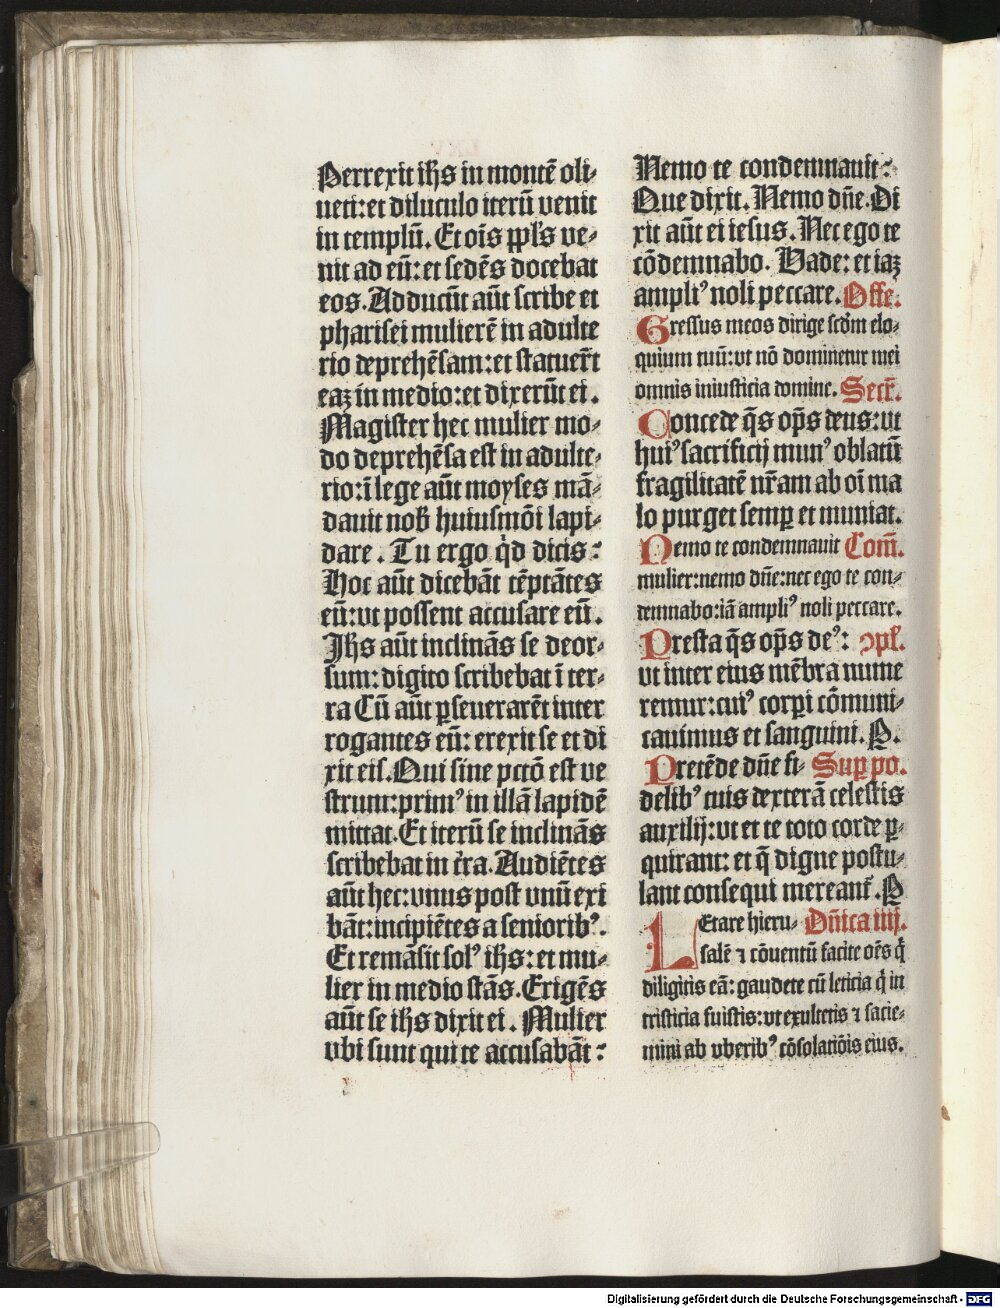 Perrexit ihs in montē oli-
ueti: et diluculo iterū venit
in templū. Et ois ppls ve-
nit ad eū: et sedēs docebat
eos. Adducūt aūt scribe et
pharisei mulierē in adulte
rio deprehēsam: et statuer̄t
eaꝫ in medio: et dixerūt ei.
Magister hec mulier mo-
do deprehēsa est in adulte-
rio: ī lege aūt moyses mā-
dauit nob̄ huiusmōi lapi-
dare. Tu ergo qͥd dicis:
Hoc aūt dicebāt tēptātes
eū: vt possent accusare eū.
Jhs aūt inclinās se deor-
sum: digito scribebat ī ter-
ra Cū aūt ꝑseuerarēt inter
rogantes eū: erexit se et di
xit eis. Qui sine pctō est ve
strum: primꝰ in illā lapidē
mittat. Et iterū se inclinās
scribebat in t̄ra. Audiētes
aūt hec: vnus post vnū exi
bāt: incipiētes a senioribꝰ.
Et remāsit solꝰ ihs: et mu-
lier in medio stās. Erigēs
aūt se ihs dixit ei. Mulier
vbi sunt qui te accusabāt:
Nemo te condemnauit:
Que dixit. Nemo dn̄e. Di
xit aūt ei iesus. Nec ego te
cōdemnabo. Vade: et iaꝫ
ampliꝰ noli peccare. Offe.
Gressus meos dirige scdm̄ elo-
quium tuū: vt nō dominetur mei
omnis iniusticia domine. Secr̄.
Concede q̄s op̄s deus: vt
huiꝰ sacrificij munꝰ oblatū
fragilitatē nr̄am ab oī ma
lo purget semꝑ et muniat.
Nemo te condemnauit Com̄.
mulier: nemo dn̄e: nec ego te con-
demnabo: iā ampliꝰ noli peccare.
Presta q̄s op̄s deꝰ: ꝯpl̄.
vt inter eius mēbra nume
remur: cuiꝰ corpi cōmuni-
cauimus et sanguini. P.
Pretēde dn̄e fi- Suꝑ po.
delibꝰ tuis dexterā celestis
auxilij: vt et te toto corde ꝑ-
quirant: et q̄ digne postu-
lant consequi mereant̄. P
LEtare hieru- Dn̄ica iiij.
salē ⁊ cōuentū facite oēs q̄
diligitis eā: gaudete cū leticia q̄ in
tristicia fuistis: vt exultetis ⁊ sacie-
mini ab vberibꝰ cōsolatiōis eius.
Digitalisierung gefördert durch die Deutsche Forschungsgemeinschaft - DFG